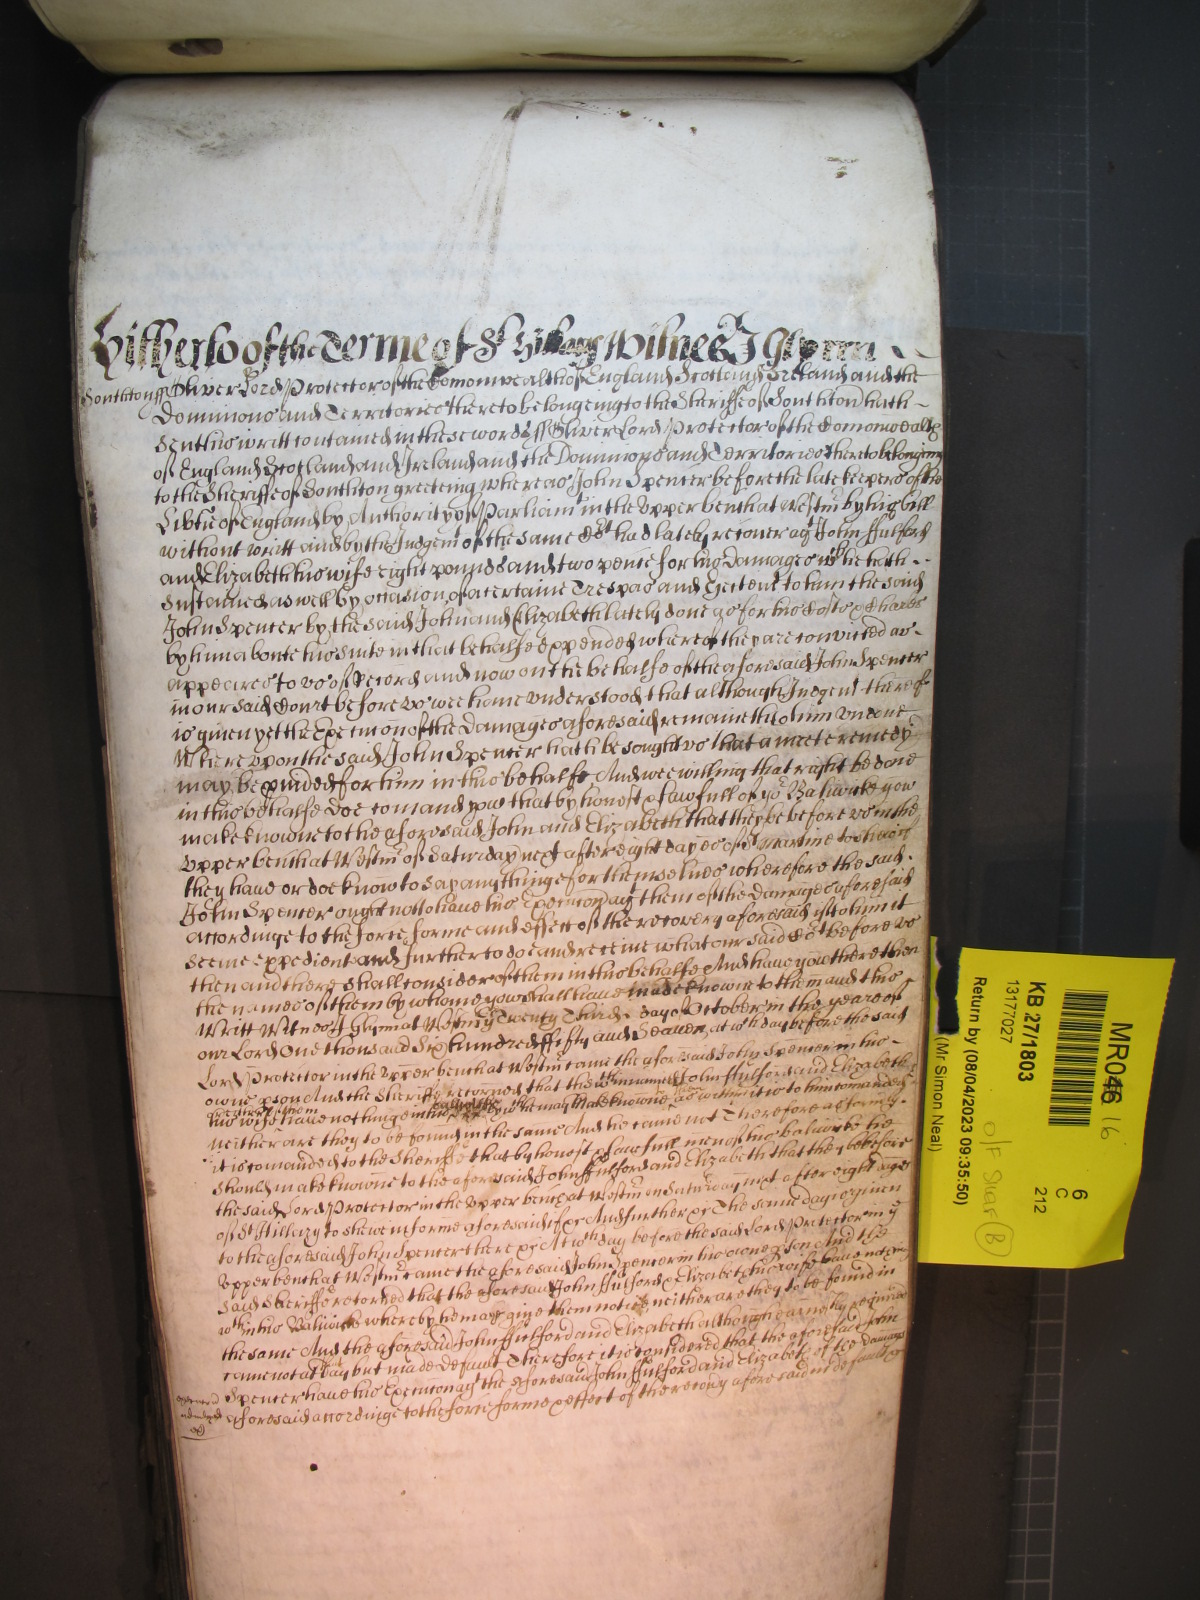 Hitherto of the Terme of St Hillary Witnes J Glynn
Southton ss Oliver Lord Protector of the Comonwealth of England Scotland Ireland and the
Dominions and Territories thereto belongeing to the Sheriffe of Southton hath
sent his writt contained in these words ss Oliver Lord Protector of the Comonwealth
of England Scotland and Ireland and the Dominions and Territories thereto belonging
to the Sheriffe of Southton greeteing whereas John Spencer before the late keepers of the
Libtie of England by Authority of Parliamt in the Upper bench at Westmr by his bill
without writt and by the Judgmt of the same Cort had lately recover agt John ffulford
and Elizabeth his wife eight pounds and two pence for his damages wch he hath
susteined aswell by occasion of a certaine Trespas and Eiectmt to him the said
John Spencer by the said John and Elizabeth lately done as for his Costs & Charges
by him aboute his suite in that behalfe expended whereof they are convicted as
appeares to us of Record and now on the behalfe of the aforesaid John Spencer
in our said Court before us wee have understood that although Judgmt thereof
is given yet the Execucon of the damages aforesaid remaineth to him undone
Whereupon the said John Spencer hath besought us that a meete remedy
may be pvided for him in this behalfe And wee willing that right be done
in this behalfe doe comand you that by honest & lawfull of yor Baliwicke you
make knowne to the aforesaid John and Elizabeth that they be before us in the
Upper bench at Westmr of Saturday next after eight dayes of St Martine to shewe if
they have or doe know to say any thinge for themselves wherefore the said
John Spencer ought not to have his Execucon agt them of the damages aforesaid
accordinge to the force forme and effect of the recovery aforesaid if to him it
seeme expedient and further to doe and receive what our said Cort before us
then and there shall consider of them in this behalfe And have you there then
the names of them by whome you shall have made knowne to them and this
Writt Witnes J Glynn at Westmr Twenty Third daye October in the yeare of
our Lord One thousand Six hundred ffifty and Seaven, at wch day before the said
Lord Protector in the Upper bench at Westmr came the aforesaid John Spencer in his
owne pson And the Sheriff retorned that the wthinnamed John ffulford and Elizabeth
his wife have nothinge in his whereby he may make knowne as within it is to him comanded
neither are they to be found in the same And he came not Therefore as formly
it is comanded to the Sheriffe that by honest & lawfull men of his baliwicke he
should make knowne to the aforesaid John ffulford and Elizabeth that they be before
the said Lord Protector in the Upper bench at Westmr on Saturday next after eight dayes
of St Hillary to shewe in forme aforesaid if &c And further &c The same day is given
to the aforesaid John Spencer there &c At wch day before the said Lord Protector in ye
Upper bench at Westmr came the aforesaid John Spencer in his owne pson And the
said Sheriffe retorned that the aforesaid John ffulford & Elizabeth his wife have nothing
wthin his Baliwicke whereby he may give them notice neither are they to be found in
the same And the aforesaid John ffulford and Elizabeth although earnestly required
came not at day but made default Therefore it is considered that the aforesaid John
Spencer have his Execucon agt the aforesaid John ffulford and Elizabeth of the damages
aforesaid accordinge to the force forme & effect of the recovy aforesaid in default &c
MR046
16
KB 27/1803
13177027
Return by (08/04/2023 09:35:50)
(Mr Simon Neal)
6
C
212
O/F Star (B)